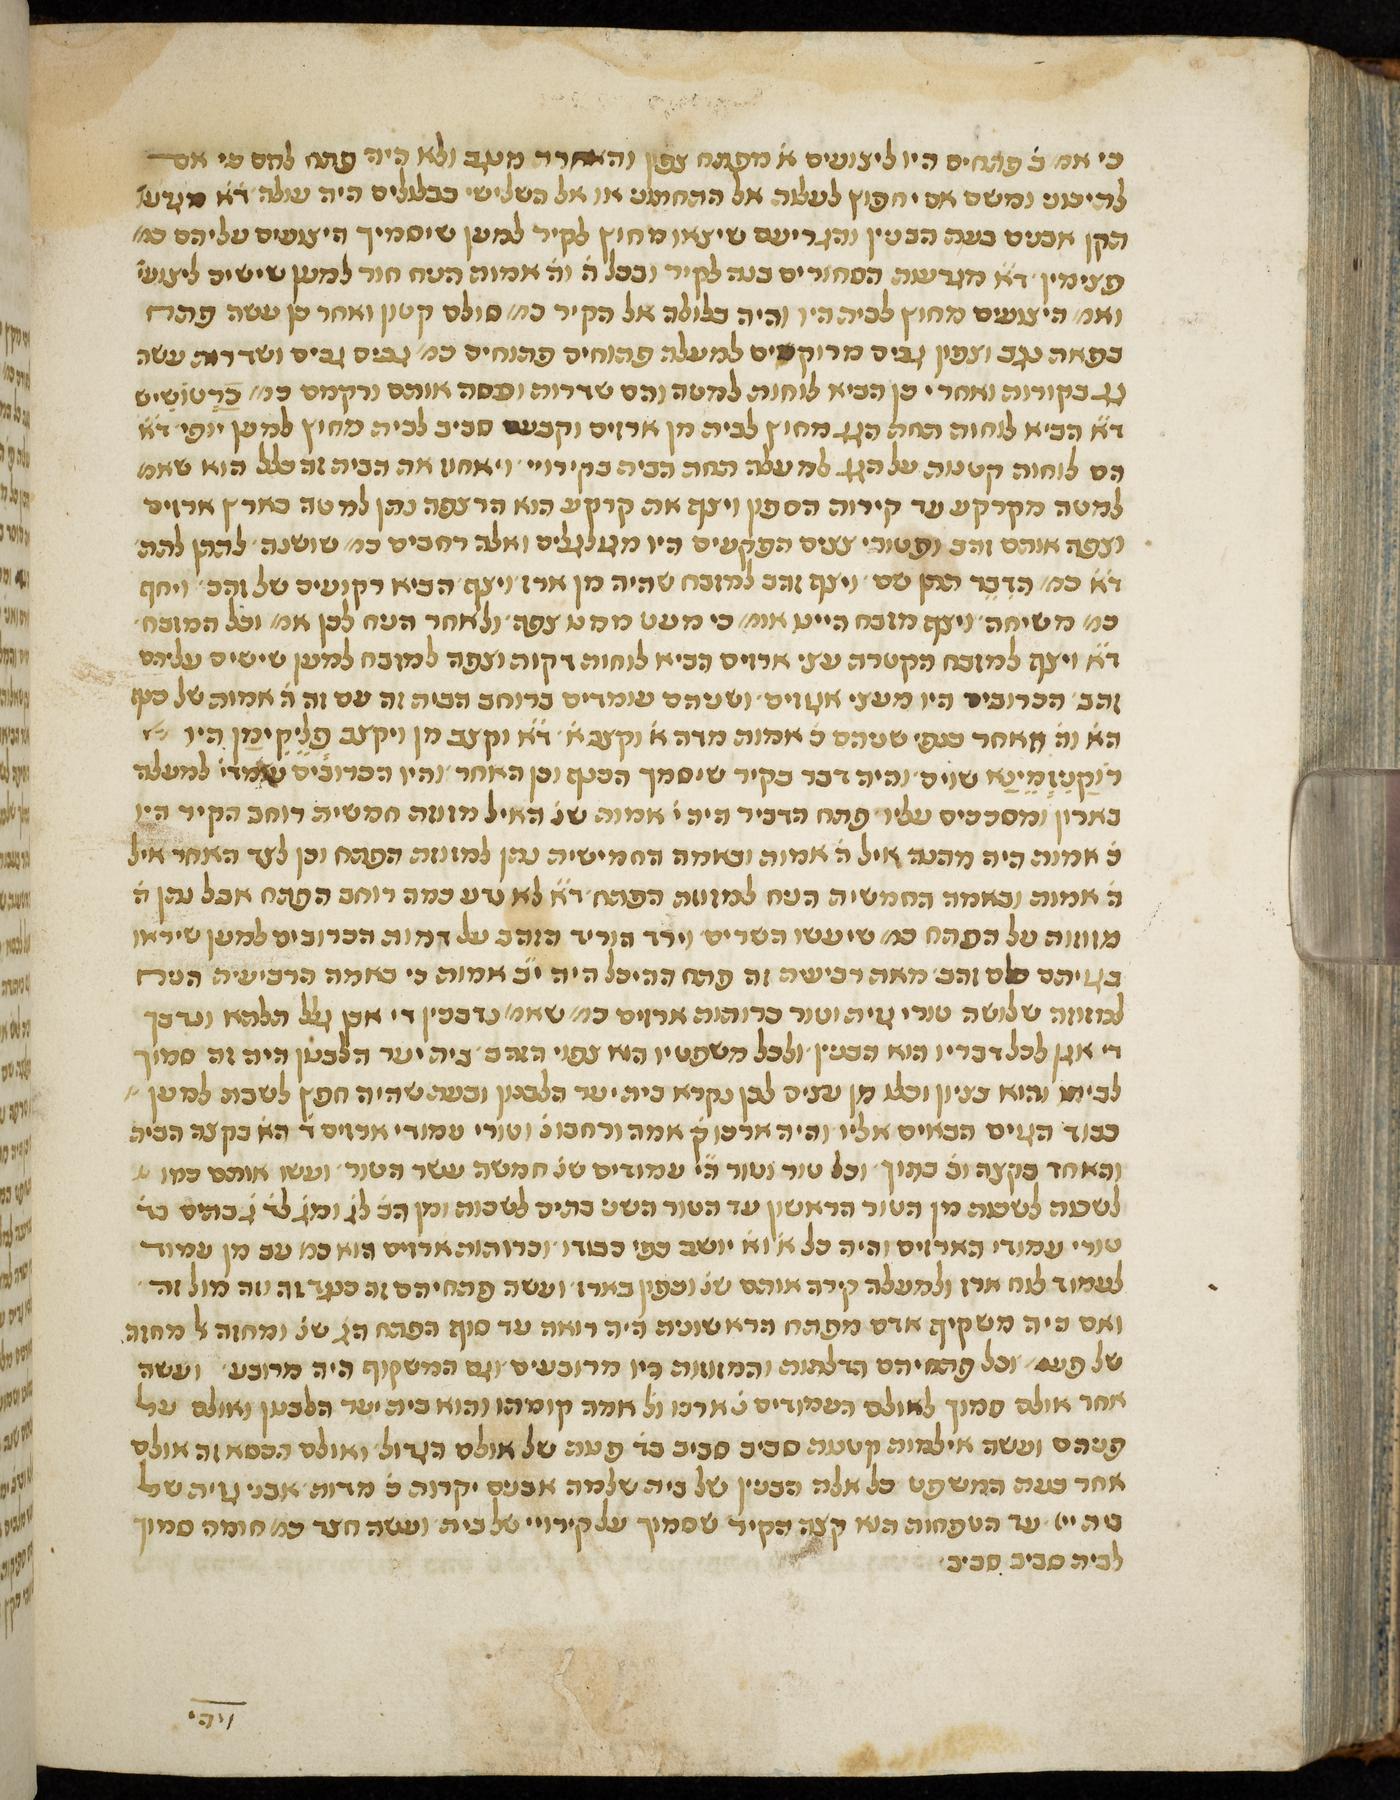 כי אמ׳ ב̇ פתחים היו ליצועים א̇ מפתח צפון והאחרד מנגב ולא היה פתח להם כי אם
לתיכונ׳ ומשם אם יחפוץ לעלות אל התחתונ׳ או אל השלישי בבלולים היה עולה ד̇א̇ מגרעו׳
הקן אבנים בעת הבנין והגריעם שיצאו מחוץ לקיר למען שיסמיך היצועים עליהם כמ׳
פצימין ד̇א̇ מגרעות הסחורים בנה לקיר ובכל ה̇ וה̇ אמות הניח חור למען שישים ליצוע׳
ואמ׳ היצועים מחוץ לבית היו והיה בלולה אל הקיר כמ׳ סולם קטון ואחר כן עשה פתח
בפאת נגב וצפון גבים מרוקמים למעלה פתוחים פתוחים כמ׳ גבים גבים ושדרות עשה
גג בקורות ואחרי כן הביא לוחות למטה והם שדרות וכסה אותם ורקמם כמ׳ ברטושיש
ד̇א̇ הביא לוחות תחת הגג מחוץ לבית מן ארזים וקבעם סביב לבית מחוץ למען יופי ד̇א̇
הם לוחות קטנות על הגג למעלה תחת הבית בקירויי ויאחוז את הבית זה כלל הוא שאמ׳
למטה מקרקע עד קירות הספון ויצף את קרקע הוא הרצפה נתן למטה בארץ ארזים
וצפה אותם זהב ופטורי ציצים הפקעים היו מגולגלים ואלה רחבים כמ׳ שושנה לתתן לתת
ד̇א̇ כמ׳ הדבר תתן שם ויצף זהב למזבח שהיה מן ארז ויצף הביא רקועים של זהב ויחף
כמ׳ משיחה ויצף מזבח היינו אומ׳ כי מעט ממנו צפה ולאחר הניח לכן אמ׳ וכל המזבח
ד̇א̇ ויצף למזבח הקטרת עצי ארזים הביא לוחות דקות וצפה למזבח למען שישים עליהם
זהב הכרובים היו מעצי אגוזים ושניהם עומדים ברוחב הבית זה עם זה ה̇ אמות של כנף
הא̇ וה̇ מאחר כנפי שניהם ב̇ אמות מדה א̇ וקצב א̇ ד̇א̇ וקצב מן ויקצב פליקימן היו
רוקטומיטא שוים והיה דבר בקיר שיסמך הכנף וכן האחר והיו הכרובים עומדי׳ למעלה
בארון ומסככים עליו פתח הדביר היה י̇ אמות שנ׳ האיל מזוזת חמשית רוחב הקיר היו
ב̇ אמות היה מהנה איל ה̇ אמות ובאמה החמישית נתן למזוזת הפתח וכן לצד האחר איל
ה̇ אמות ובאמה החמשית הניח למזוזת הפתח ד̇א̇ לא נודע כמה רוחב הפתח אבל נתן ה̇
מזוזות על הפתח כמ׳ שיעשו השרים וירד הוריד הזהב על דמות הכרובים למען שיראו
בעיתם שם זהב מאת רביעית זה פתח ההיכל היה י̇ב̇ אמות כי באמה הרביעית הניח
למזוזה שלושה טורי גזית וטור כרותות ארזים כמ׳ שאמ׳ נדבכין די אבן גלל תלתא ונדבך
די אע לכל דבריו הוא הבנין ולכל משפטיו הוא צפוי הזהב בית יער הלבנון היה זה סמוך
לביתו והוא בציון וכלו מן עצים לכן נקרא בית יער הלבנון ובעת שהיה חפץ לשבת למען
כבוד הגוים הבאים אליו והיה ארכו ק̇ אמה ורחבו נ̇ וטורי עמודי ארזים ד̇ הא̇ בקצה הבית
והאחד בקצה וב̇ בתוך וכל טור וטור ה̇י̇ עמודים שנ׳ חמשה עשר הטור ועשו אותם כמו
לשכות לשכות מן הטור הראשון עד הטור השני בתים לשכות ומן הב̇ לג̇ ומג̇ לד̇ ג̇ בתים בד̇
טורי עמודי הארזים והיה כל א̇ וא̇ יושב כפי כבודו וכרותות ארזים הוא כמ׳ עב מן עמוד
לעמוד לוח ארז ולמעלה קירה אותם שנ׳ וספון בארז ועשה פתחיהם זה כנגד זה וזה מול זה
ואם היה משקיף אדם מפתח הראשונית היה רואה עד סוף הפתח הג̇ שנ׳ ומחזה אל מחזה
של פעמ׳ וכל פתחיהם הדלתות והמזוזות היו מרובעים וגם המשקוף היה מרובע ועשה
אחר אולם סמוך לאולם העמודים נ̇ ארכו ול̇ אמה קומתו והוא בית יער הלבנון ואולם על
פניהם ועשה אילמות קטנות סביב סביב בד̇ פנות של אולם הגדול ואולם הכסא זה אולם
אחר בעת המשפט כל אלה הבנין של בית שלמה אבנים יקרות כ̇ מדות אבני גזית של
בית ייי׳ עד הטפחות הוא קצה הקיר שסמוך על קירויי של בית ועשה חצר כמ׳ חומה סמוך
לבית סביב סביב
ויהי